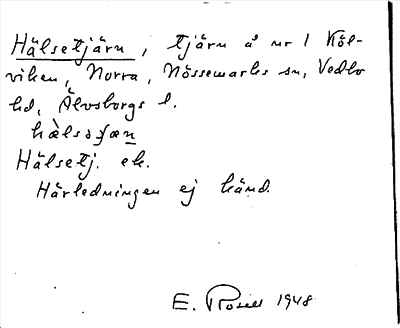 Hälsetjärn, tjärn å nr 1 Köl-
viken, Norra, Nössemarks sn, Vedbo
hd, Älvsborgs l.
hælsəʃæn
Hälsetj. ek.
Härledningen ej känd.
E. Rosell 1948